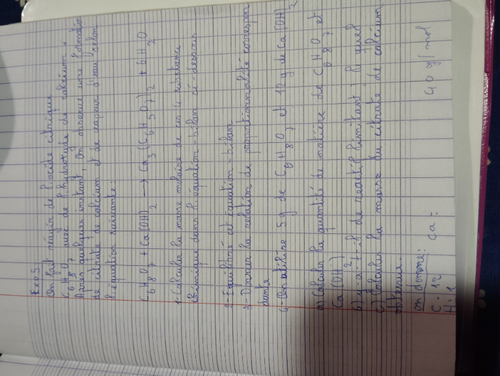 Exo 5
On fait réagir de l'acide citrique
C6H8O7 avec de l'hydroxyde de calcium.
Après quelques instant, On observe une formation
de citrate de calcium et de vapeur d'eau selon
l'équation suivante
C6H8O7 + Ca(OH)2 → Ca3(C6H5O7)2 + 6H2O
1. Calculer la masse molaire de substance
chimique dans l'équation-bilan ci-dessus
2- Equilibré cet équation-bilan
3- Donner la relation de proportionnalité correspon
dante
4- On utilise 5g de C6H8O7 et 10g de Ca(OH)2
a) Calculer la quantité de matière de C6H8O7 et
Ca(OH)2
b) y a-t-il de réactif limitant lequel
c) Calculer la masse du citrate de calcium
obtenue.
on donne:
C = 12 Ca = 40 g/mol
H = 1